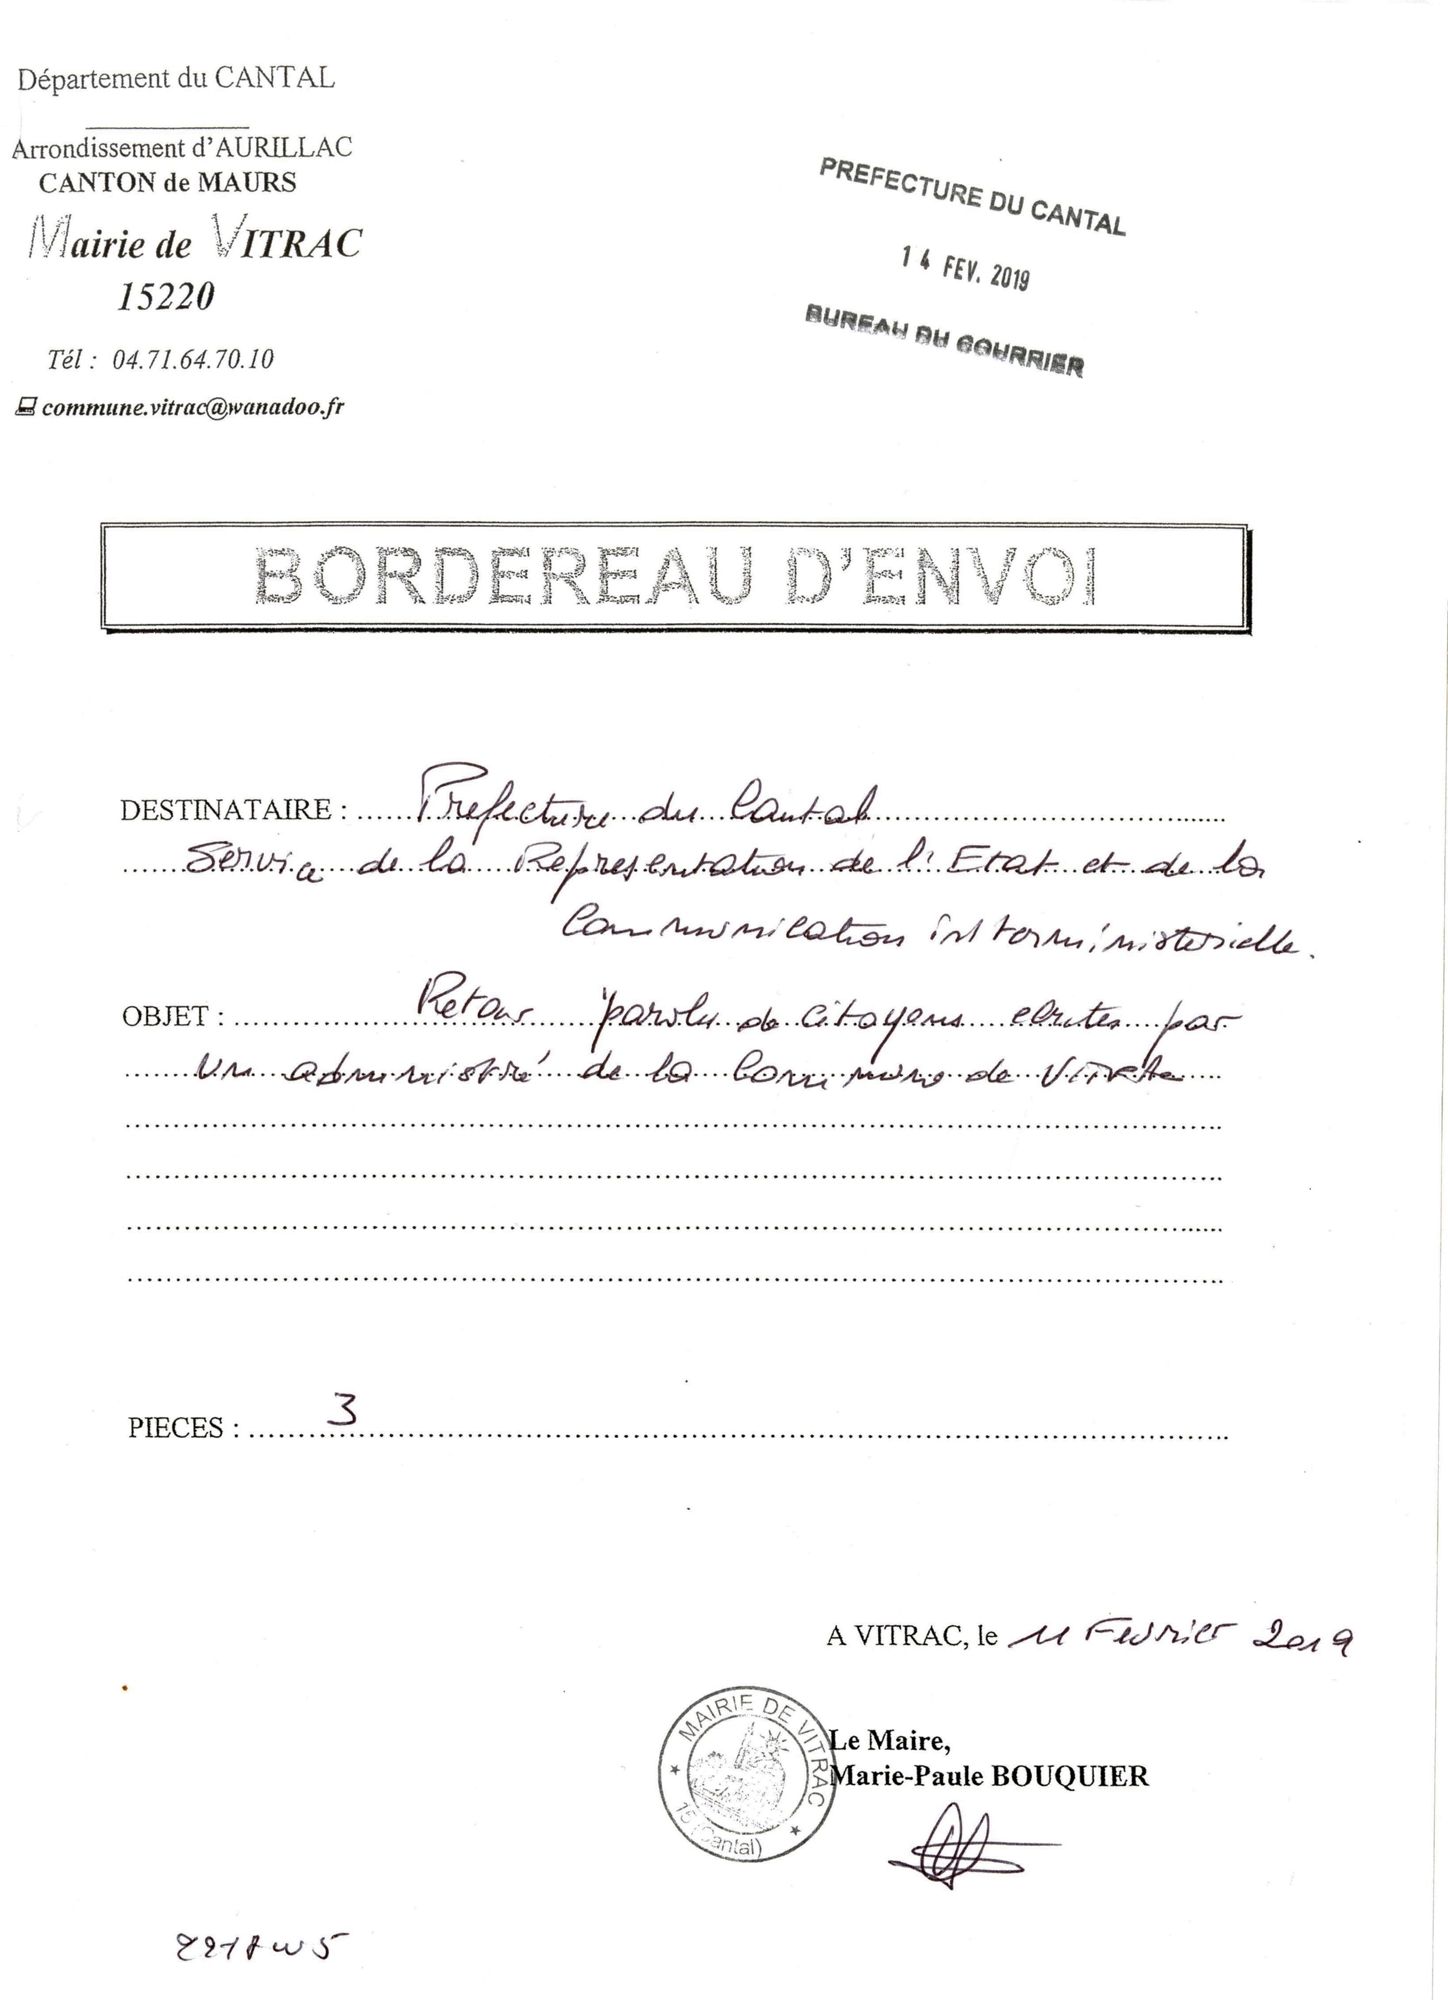 Département du CANTAL
Arrondissement d'AURILLAC
CANTON de MAURS
Mairie de VITRAC
15220
Tél : 04.71.64.70.10
commune.vitrac@wanadoo.fr
PREFECTURE DU CANTAL
14 FEV. 2019
BUREAU DU COURRIER
BORDEREAU D'ENVOI
DESTINATAIRE : Prefecture du Cantal
Service de la Représentation de l'Etat et de la
Communication interministerielle.
OBJET : Retour paroles de citoyens ecrites par
un administré de la Commune de Vitrac
PIECES : 3
A VITRAC, le 11 Fevrier 2019
MAIRIE DE VITRAC
15 (Cantal)
Le Maire,
Marie-Paule BOUQUIER